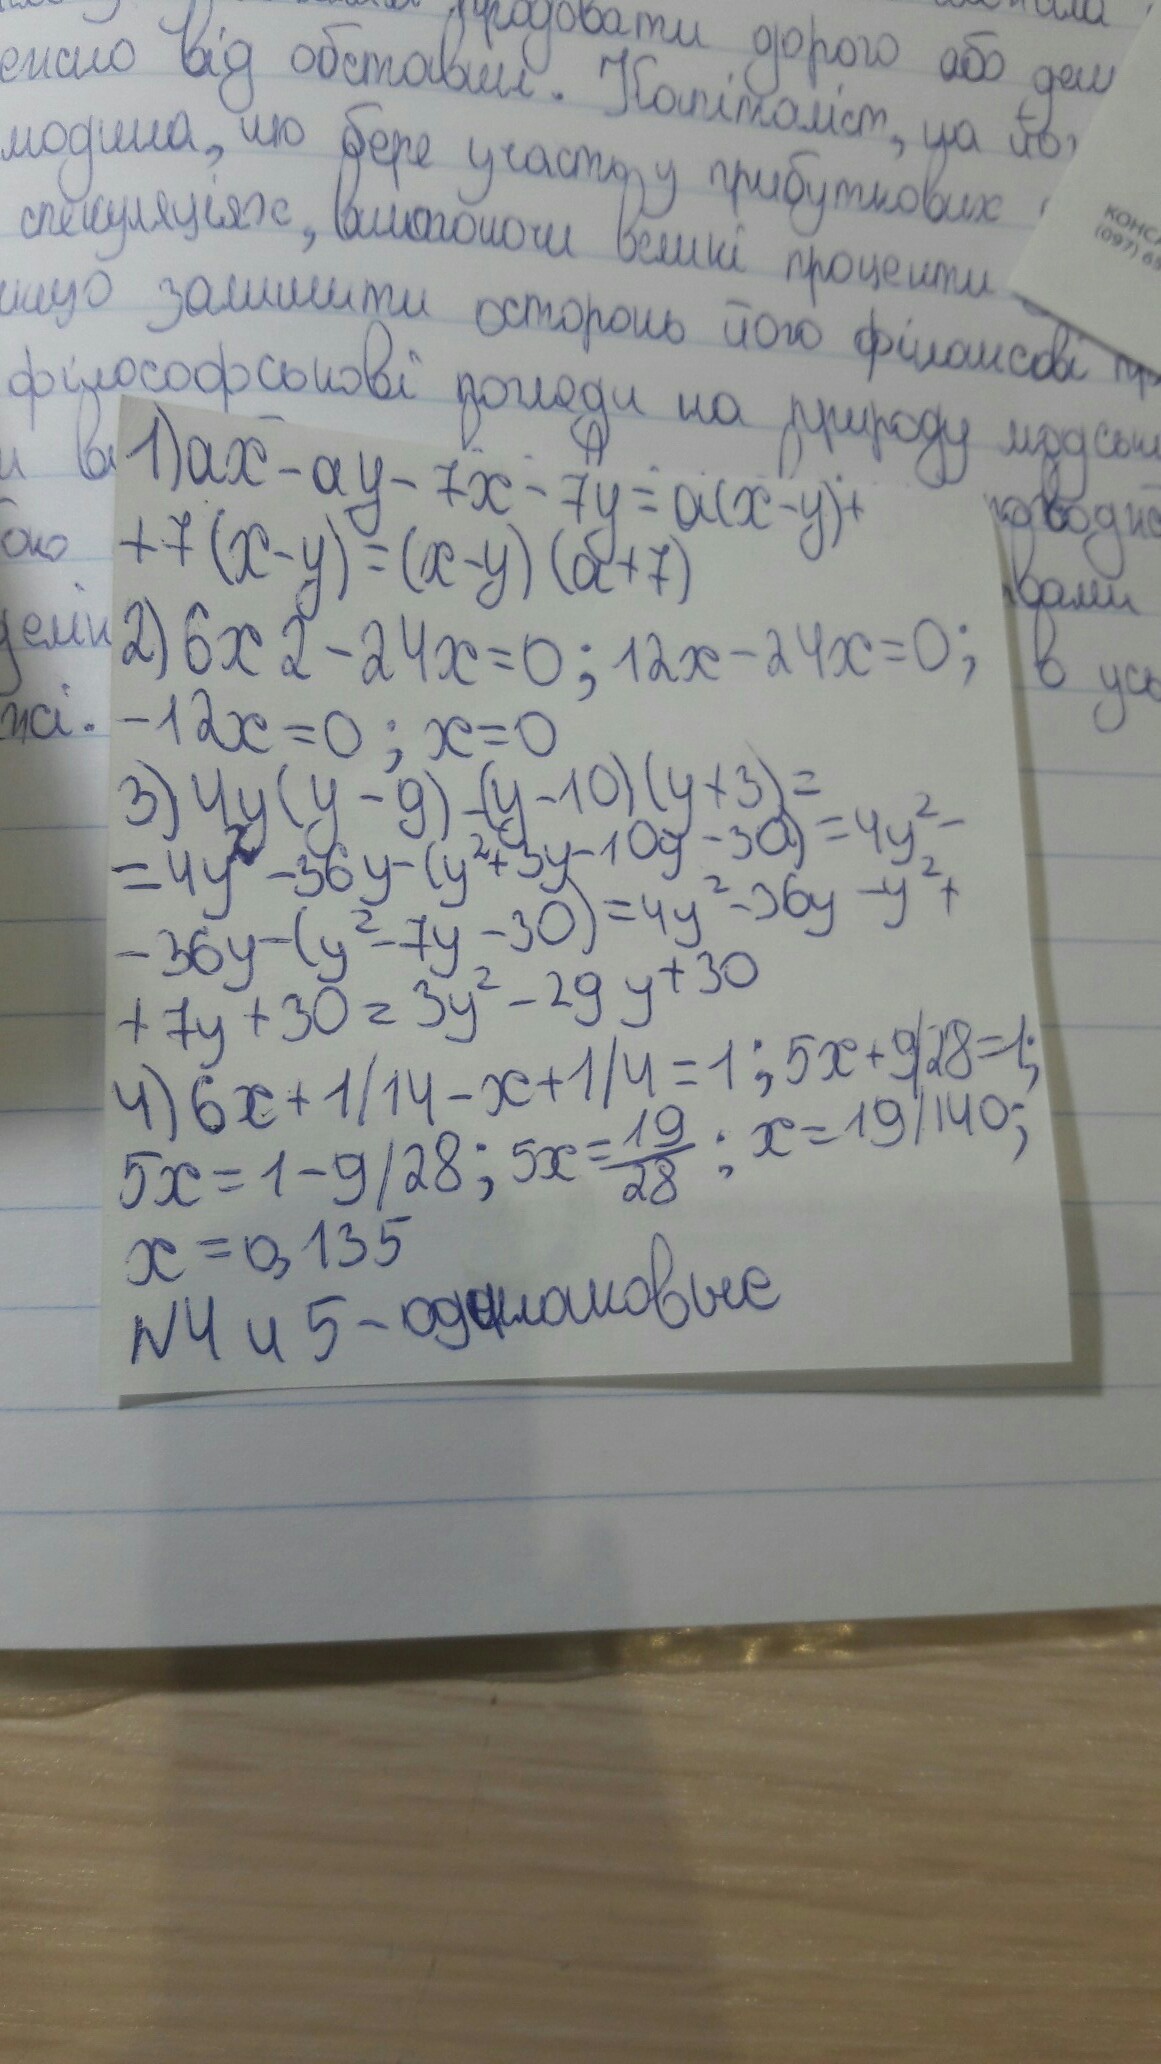 продовати дорого або
від обставин. Капіталіст, ца
бере участь у прибуткових
спекуляціях, вимагаючи великі проценти
КОНСА
(097) 69
залишити осторонь його фінансові
філософськові погляди на природу
1) ax - ay - 7x - 7y = a(x-y)+
+7(x-y)=(x-y)(a+7)
2) 6x2-24x=0; 12x-24x=0;
в
-12x=0; x=0
3) 4y(y-9)-(y-10)(y+3)=
=4y²-36y-(y²+3y-10y-30)=4y²-
-36y-(y²-7y-30)=4y²-36y-y²+
+7y+30=3y²-29y+30
4) 6x+1/14-x+1/4=1; 5x+9/28=1;
5x=1-9/28; 5x=19/28; x=19/140;
x=0,135
N4 и 5 - одинаковые